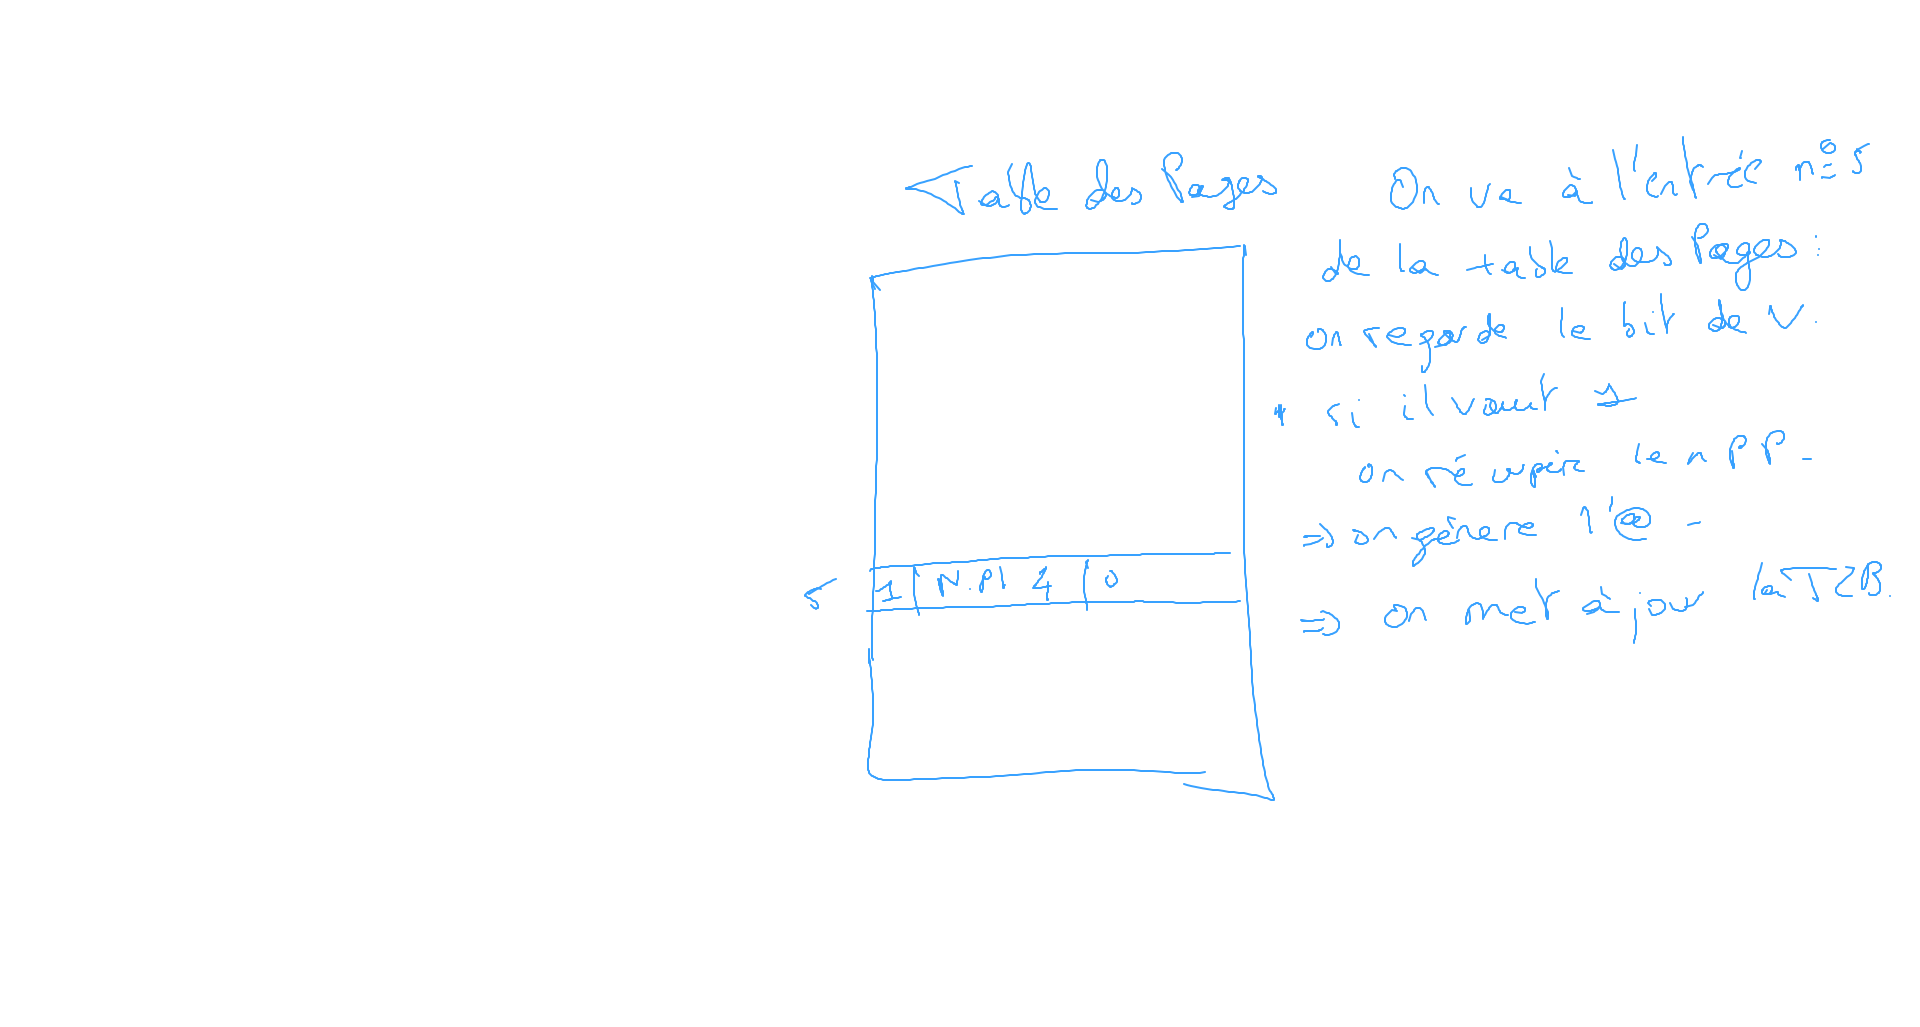 Table des Pages
On va à l'entrée n° 5
de la table des Pages :
on regarde le bit de V.
* si il vaut 1
on récupère le n PP.
⇒ on génère l'@.
⇒ on met à jour la TLB.
5 1 | N.Pl 4 | 0